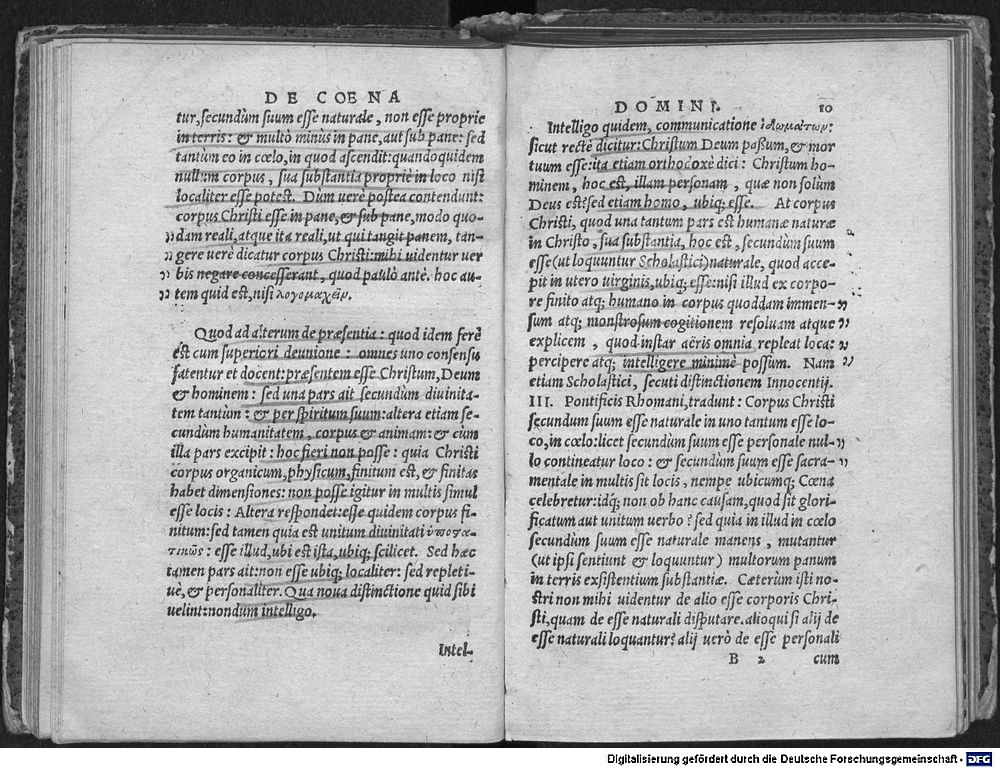 DE COENA
tur, secundùm suum esse naturale, non esse proprie
in terris: & multò minùs in pane, aut sub pane: sed
tantùm eo in cœlo, in quod ascendit: quandoquidem
nullum corpus, sua substantia propriè in loco nisi
localiter esse potest. Dùm verè postea contendunt:
corpus Christi esse in pane, & sub pane, modo quo-
dam reali, atque ita reali, ut qui tangit panem, tan-
gere uerè dicatur corpus Christi: mihi uidentur uer
bis negare concesserant, quod paulò antè. hoc au-
tem quid est, nisi λογομαχεῖν.
Quod ad alterum de præsentia: quod idem ferè
est cum superiori de unione: omnes uno consensu
fatentur et docent: præsentem esse Christum, Deum
& hominem: sed una pars ait secundùm diuinita-
tem tantùm: & per spiritum suum: altera etiam se-
cundùm humanitatem, corpus & animam: & cùm
illa pars excipit: hoc fieri non posse: quia Christi
corpus organicum, physicum, finitum est, & finitas
habet dimensiones: non posse igitur in multis simul
esse locis: Altera respondet: esse quidem corpus fi-
nitum: sed tamen quia est unitum diuinitati ὑποστα-
τικῶς: esse illud, ubi est ista, ubiq; scilicet. Sed hæc
tamen pars ait: non esse ubiq; localiter: sed repleti-
uè, & personaliter. Qua noua distinctione quid sibi
uelint: nondum intelligo.
Intel-
DOMINI. 10
Intelligo quidem, communicatione ἰδιωμάτων:
sicut rectè dicitur: Christum Deum paßum, & mor
tuum esse: ita etiam orthodoxè dici: Christum ho-
minem, hoc est, illam personam, quæ non solùm
Deus est? sed etiam homo, ubiq; esse. At corpus
Christi, quod una tantum pars est humanæ naturæ
in Christo, sua substantia, hoc est, secundùm suum
esse (ut loquuntur Scholastici) naturale, quod acce-
pit in utero uirginis, ubiq; esse: nisi illud ex corpo-
re finito atq; humano in corpus quoddam immen-
sum atq; monstrosum cogitionem resoluam atque
explicem, quod instar aëris omnia repleat loca:
percipere atq; intelligere minimè possum. Nam
etiam Scholastici, secuti distinctionem Innocentij.
III. Pontificis Rhomani, tradunt: Corpus Christi
secundum suum esse naturale in uno tantum esse lo-
co, in cœlo: licet secundùm suum esse personale nul-
lo contineatur loco: & secundùm suum esse sacra-
mentale in multis sit locis, nempe ubicumq; Cœna
celebretur: idq; non ob hanc causam, quod sit glori-
ficatum aut unitum uerbo? sed quia in illud in cœlo
secundùm suum esse naturale manens, mutantur
(ut ipsi sentiunt & loquuntur) multorum panum
in terris exsistentium substantiæ. Cæterùm isti no-
stri non mihi uidentur de alio esse corporis Chri-
sti, quam de esse naturali disputare. alioqui si alij de
esse naturali loquantur? alij uerò de esse personali
B 2 cum
Digitalisierung gefördert durch die Deutsche Forschungsgemeinschaft - DFG